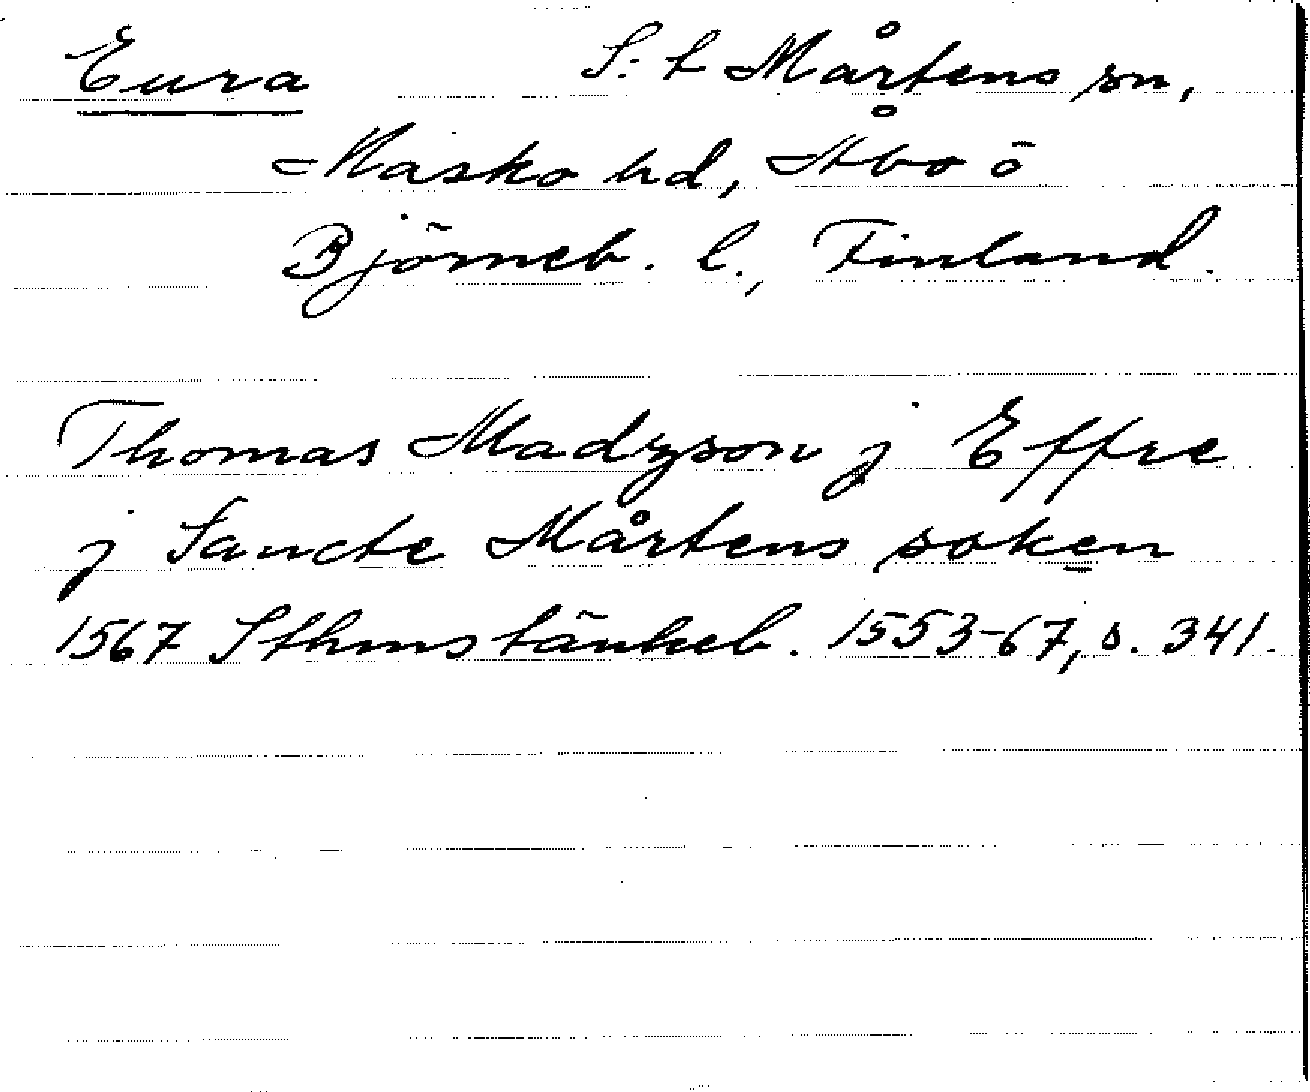 Eura S:t Mårtens sn,
Masko hd, Åbo o
Björneb. l., Finland.
Thomas Madzson j Effre
j Sancte Mårtens soken
1567 Sthms tänkeb. 1553-67, s. 341.